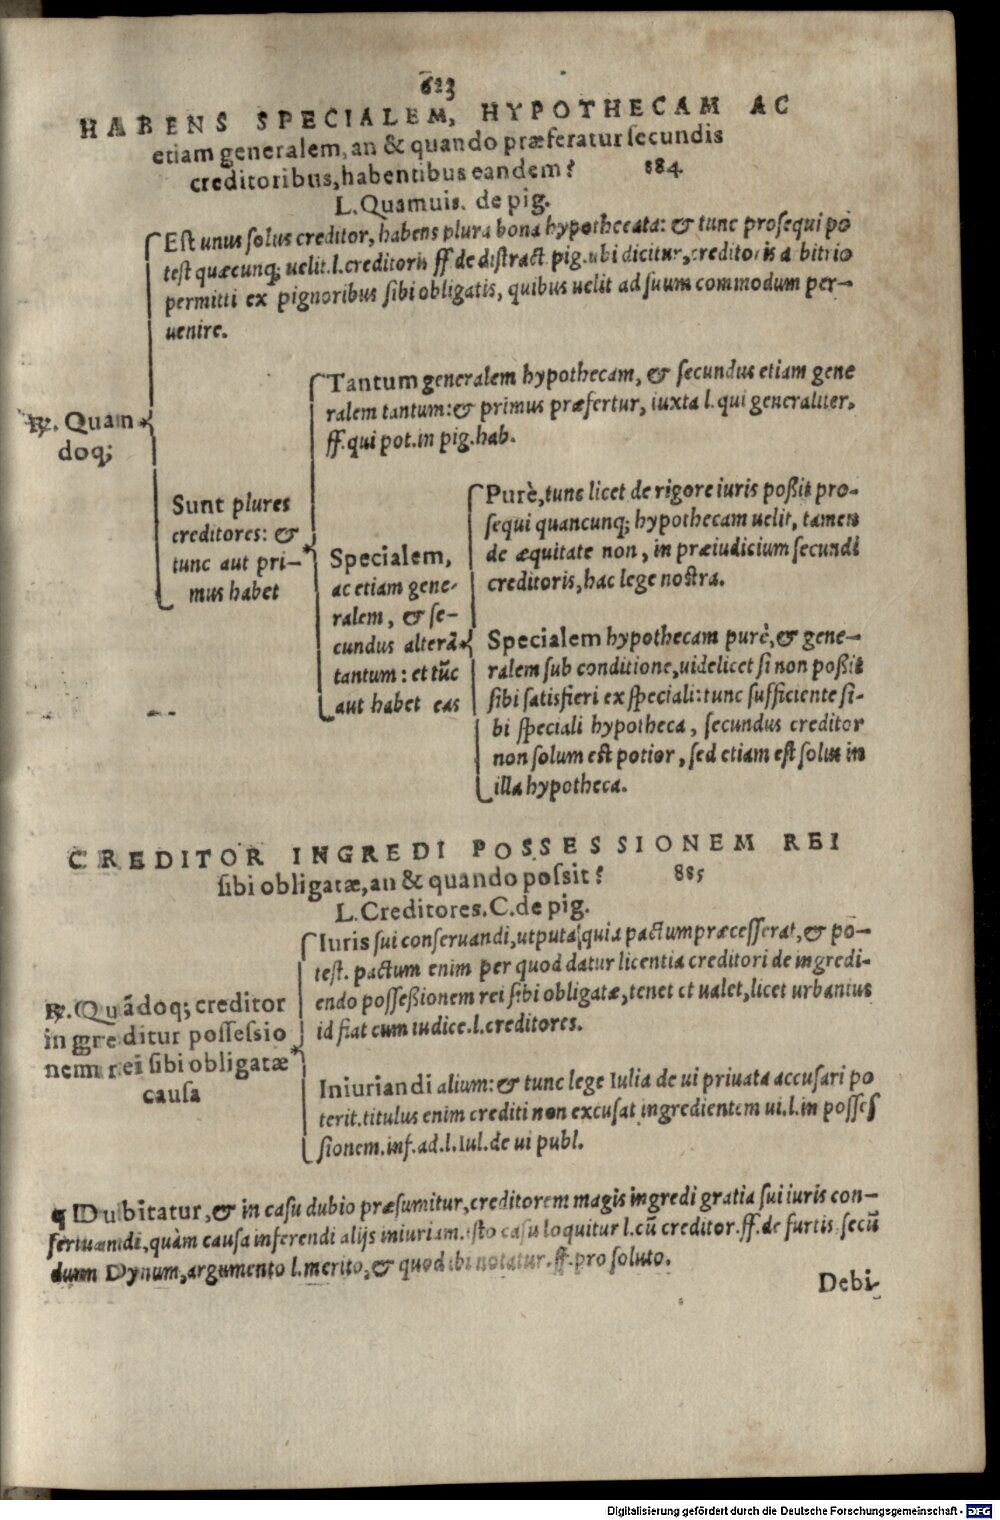 623
HABENS SPECIALEM, HYPOTHECAM AC
etiam generalem, an & quando præferatur secundis
creditoribus, habentibus eandem? 884.
L. Quamuis. de pig.
Est unus solus creditor, habens plura bona hypothecata: & tunc prosequi po
test quæcunq; uelit. l. creditoris ff. de distract. pig. ubi dicitur, creditoris a bitrio
permitti ex pignoribus sibi obligatis, quibus uelit ad suum commodum per-
uenire.
℟. Quan
doq;
Sunt plures
creditores: &
tunc aut pri-
mus habet
Tantum generalem hypothecam, & secundus etiam gene
ralem tantum: & primus præfertur, iuxta l. qui generaliter,
ff. qui pot. in pig. hab.
Specialem,
ac etiam gene-
ralem, & se-
cundus alterā
tantum: et tūc
aut habet eas
Purè, tunc licet de rigore iuris poßit pro-
sequi quancunq; hypothecam uelit, tamen
de æquitate non, in præiudicium secundi
creditoris, hac lege nostra.
Specialem hypothecam purè, & gene-
ralem sub conditione, uidelicet si non poßit
sibi satisfieri ex speciali: tunc sufficiente si-
bi speciali hypotheca, secundus creditor
non solum est potior, sed etiam est solus in
illa hypotheca.
CREDITOR INGREDI POSSESSIONEM REI
sibi obligatæ, an & quando possit? 885
L. Creditores. C. de pig.
℟. Quādoq; creditor
ingreditur possessio
nem rei sibi obligatæ
causa
Iuris sui conseruandi, utputa quia pactum præcesserat, & po-
test. pactum enim per quod datur licentia creditori de ingredi-
endo posseßionem rei sibi obligatæ, tenet et ualet, licet urbanius
id fiat cum iudice. l. creditores.
Iniuriandi alium: & tunc lege Iulia de ui priuata accusari po
terit. titulus enim crediti non excusat ingredientem ui. l. in posses
sionem. inf. ad. l. Iul. de ui publ.
¶ Dubitatur, & in casu dubio præsumitur, creditorem magis ingredi gratia sui iuris con-
seruandi, quàm causa inferendi alijs iniuriam. isto casu loquitur l. cū creditor. ff. de furtis, secū
dum Dynum, argumento l. merito, & quod ibi notatur. ff. pro soluto.
Debi-
Digitalisierung gefördert durch die Deutsche Forschungsgemeinschaft - DFG